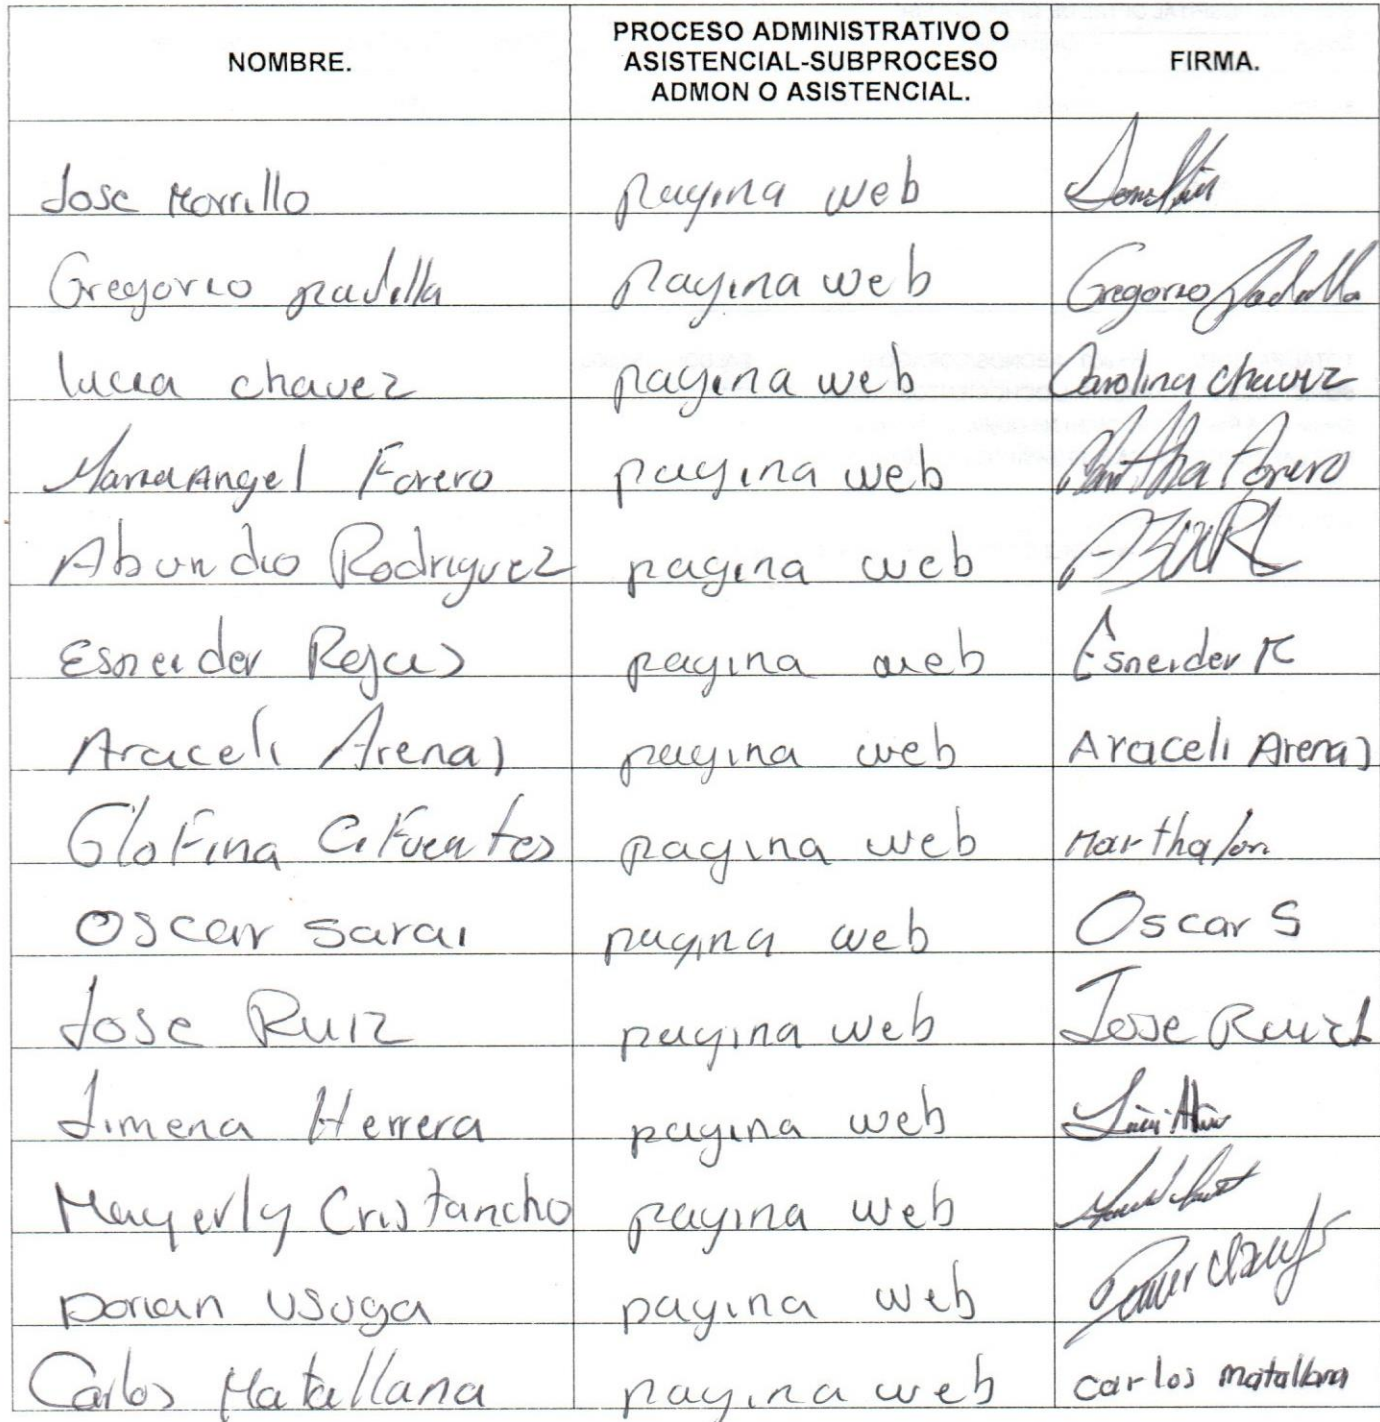 NOMBRE. PROCESO ADMINISTRATIVO O ASISTENCIAL-SUBPROCESO ADMON O ASISTENCIAL. FIRMA.
Jose Morrillo pagina web
Gregorio padilla pagina web Gregorio Padilla
lucia chavez pagina web Carolina chavez
Maria Angel Forero pagina web Forero
Abundio Rodriguez pagina web
Esneider Rojas pagina web Esneider R
Araceli Arenas pagina web Araceli Arenas
Glofina Cifuentes pagina web Martha
Oscar sarai pagina web Oscar S
Jose Ruiz pagina web Jose
Jimena Herrera pagina web
Mayerly Cristancho pagina web
Dorian Usuga pagina web
Carlos Matallana pagina web carlos matallana